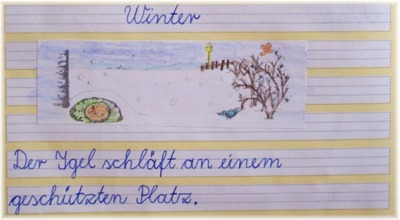 Winter
Der Igel schläft an einem
geschützten Platz.